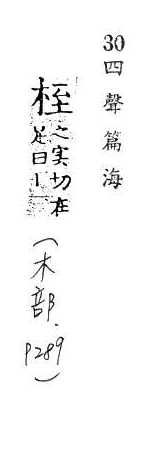 30四聲篇海
桎之実切在
足曰丨
(木部.
P289)